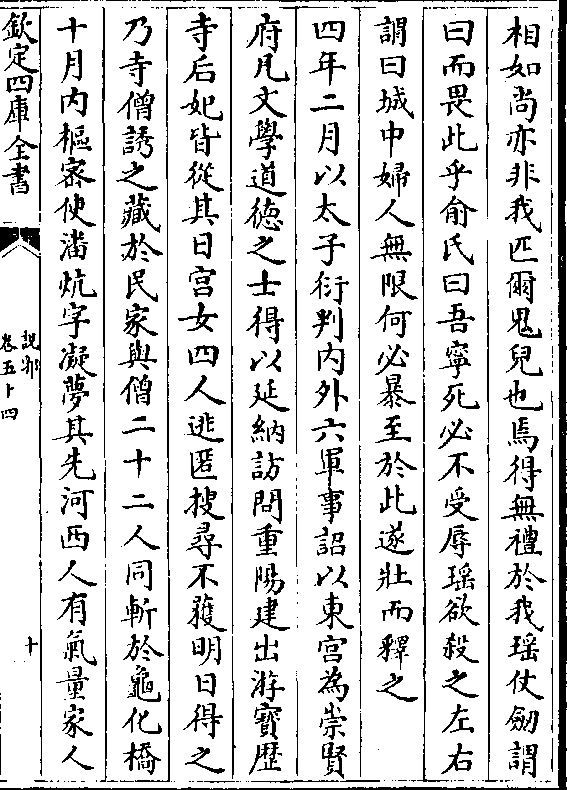 相如尚亦非我匹爾鬼兒也焉得無禮於我瑶仗劒謂
曰而畏此乎俞氏曰吾寧死必不受辱瑶欲殺之左右
謂曰城中婦人無限何必暴至於此遂壯而釋之
四年二月以太子衍判内外六軍事詔以東宫為崇賢
府凡文學道德之士得以延納訪問重陽建出游寳歴
寺后妃皆從其日宫女四人逃匿搜尋不獲明日得之
乃寺僧誘之藏於民家與僧二十二人同斬於龜化橋
十月内樞密使潘炕字凝夢其先河西人有氣量家人
欽定四庫全書
說郛
卷五十四
十